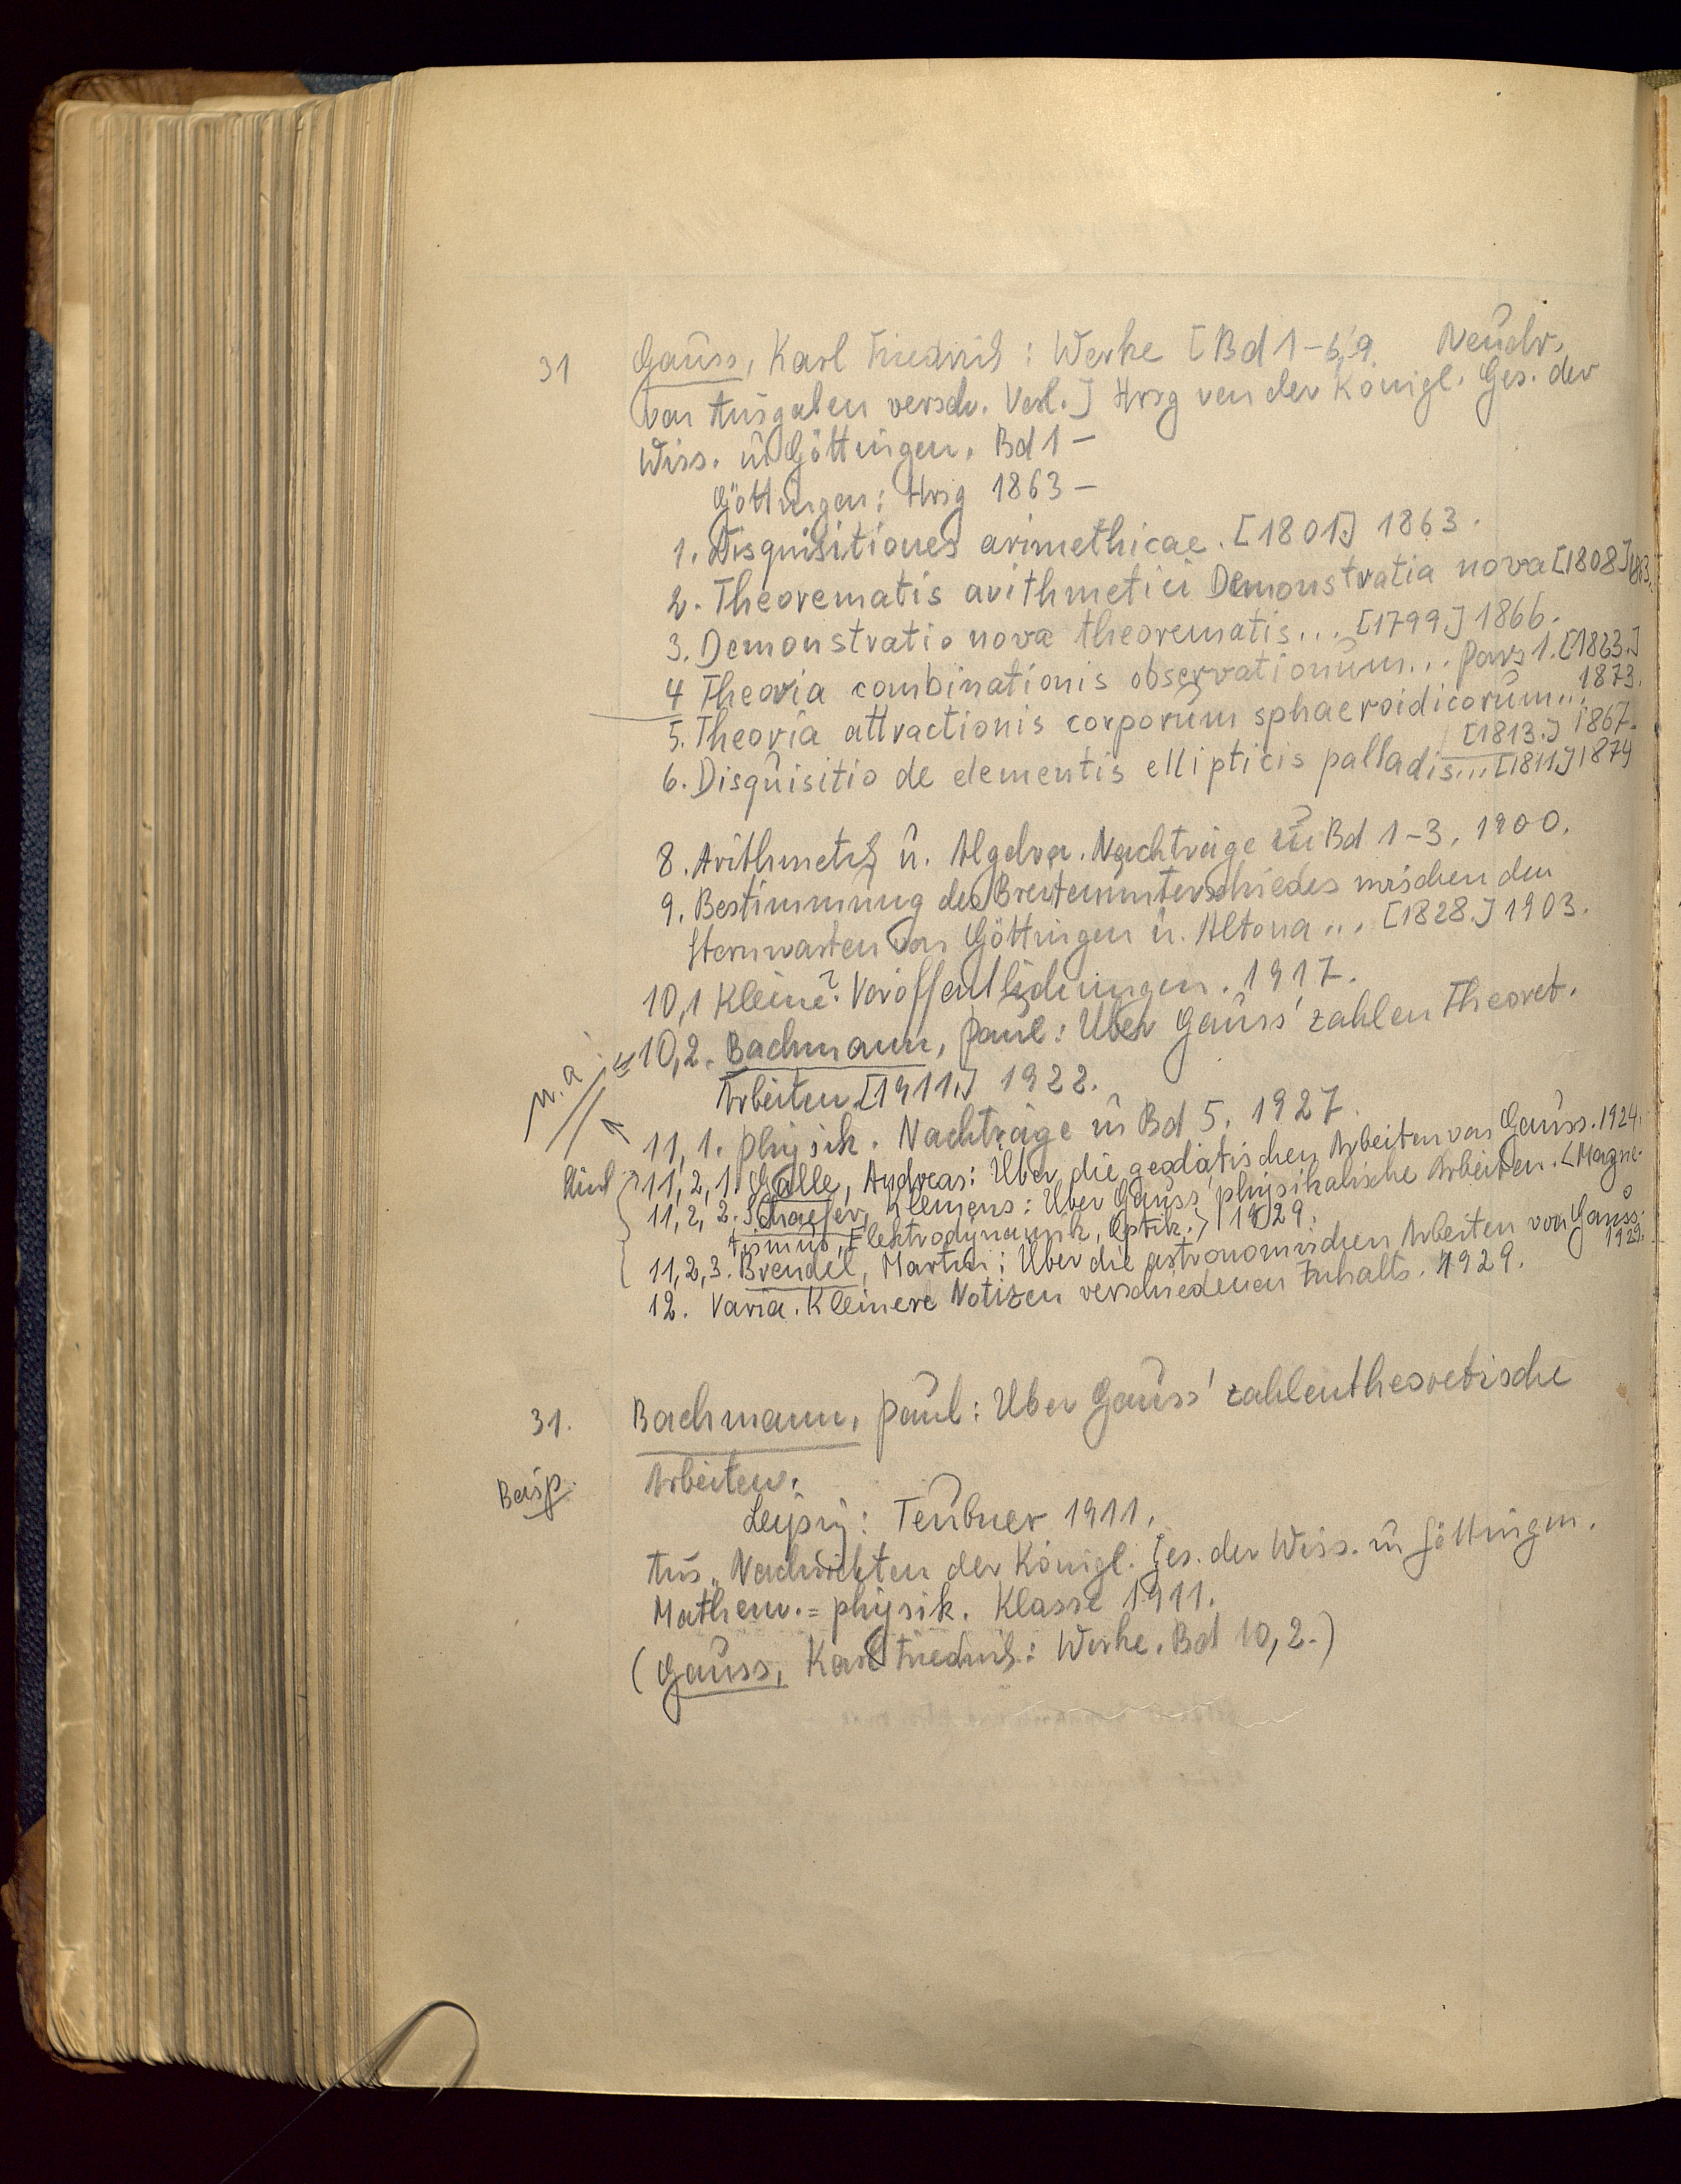 31 Gauss, Karl Friedrich: Werke [Bd 1-6,9. Neudr.
von Ausgaben versch. Verl.] Hrsg von der Königl. Ges. der
Wiss. zu Göttingen. Bd 1 –
Göttingen: Hrsg 1863 –
1. Disquisitiones arimethicae. [1801.] 1863.
2. Theorematis arithmetici Demonstratia nova [1808]
3. Demonstratio nova theorematis... [1799.] 1866.
4 Theoria combinationis observationum... Pars 1. [1823.]
1873.
5. Theoria attractionis corporum sphaeroidicorum...
[1813.] 1867.
6. Disquisitio de elementis ellipticis palladis... [1811.] 1874
8. Arithmetik u. Algebra. Nachträge zu Bd 1-3. 1900.
9. Bestimmung des Breitenunterschiedes zwischen den
Sternwarten von Göttingen u. Altona... [1828.] 1903.
10,1 Kleine? Veröffentlichungen. 1917.
10,2. Bachmann, Paul: Über Gauss' zahlentheoret.
Arbeiten [1911.] 1922.
11,1. Physik. Nachträge zu Bd 5. 1927.
11,2,1. Galle, Andreas: Über die geodätischen Arbeiten von Gauss. 1924.
11,2,2. Schaefer, Klemens: Über Gauss' physikalische Arbeiten. <Magne-
tismus, Elektrodynamik, Optik.> 1929.
11,2,3. Brendel, Martin: Über die astronomischen Arbeiten von Gauss.
1929.
12. Varia. Kleinere Notizen verschiedenen Inhalts. 1929.
31. Bachmann, Paul: Über Gauss' zahlentheoretische
Arbeiten.
Beisp.
Leipzig: Teubner 1911.
Aus „Nachrichten der Königl. Ges. der Wiss. zu Göttingen.
Mathem.=physik. Klasse 1911.
(Gauss, Karl Friedrich: Werke. Bd 10,2.)